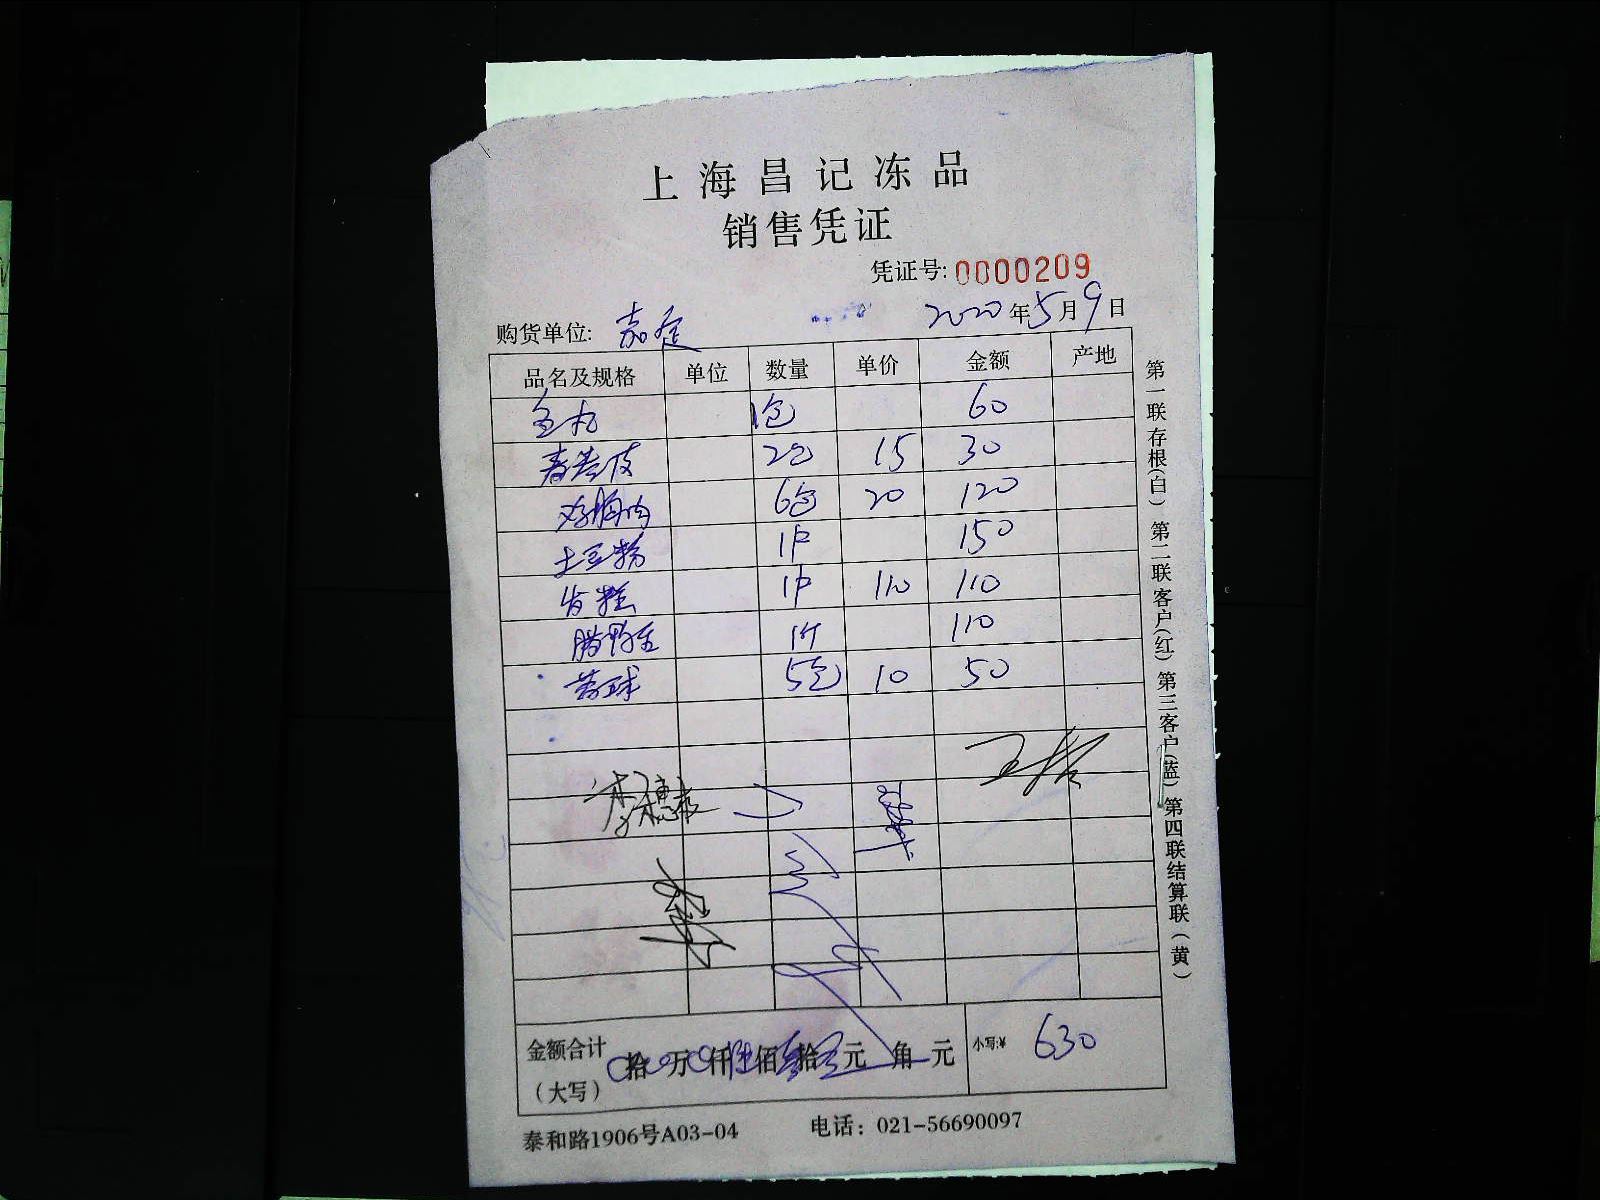 上海昌记冻品
销售凭证
凭证号:0000209
购货单位: 嘉定 2020年5月9日
品名及规格 单位 数量 单价 金额 产地
1包 60
春卷皮 2包 15 30
鸡胸肉 6包 20 120
土豆粉 1件 150
1件 110 110
1件 110
5包 10 50
金额合计 拾 万 仟 陆佰 叁拾 元 角 元 小写:¥ 630
(大写)
泰和路1906号A03-04 电话：021-56690097
第一联存根(白) 第二联客户(红) 第三客户(蓝) 第四联结算联(黄)